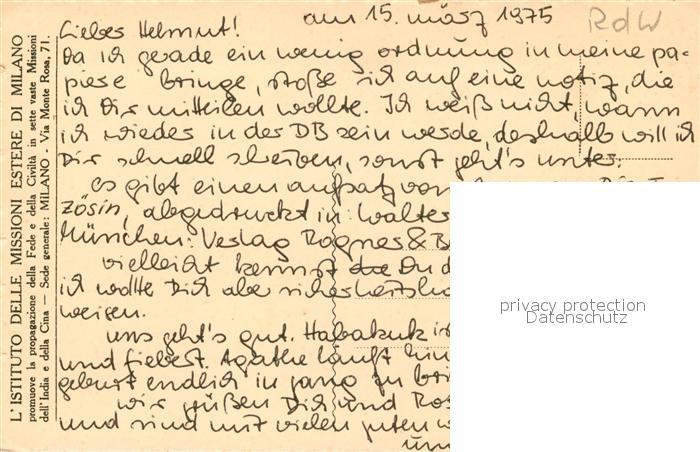 L'ISTITUTO DELLE MISSIONI ESTERE DI MILANO
promuove la propagazione della Fede e della Civiltà in sette vaste Missioni
dell'India e della Cina — Sede generale: MILANO - Via Monte Rosa, 71.
am 15. märz 1975
RdW
Lieber Helmut!
Da ich gerade ein wenig ordnung in meine pa-
piere bringe, stoße ich auf eine notiz, die
ich Dir mitteilen wollte. Ich weiß nicht, wann
ich wieder in der DB sein werde, deshalb will ich
Dir schnell schreiben, sonst geht's unter:
es gibt einen aufsatz von
zösin, abgedruckt in Walter
München: Verlag Rogner & B
vielleicht kennst Du d
ich wollte Dich aber sicher
weisen.
uns geht's gut. Habakuk is
und fiebert. Agathe läuft hin
geburt endlich in gang zu bri
wir grüßen Dich und Ros
und sind mit vielen guten w
privacy protection
Datenschutz